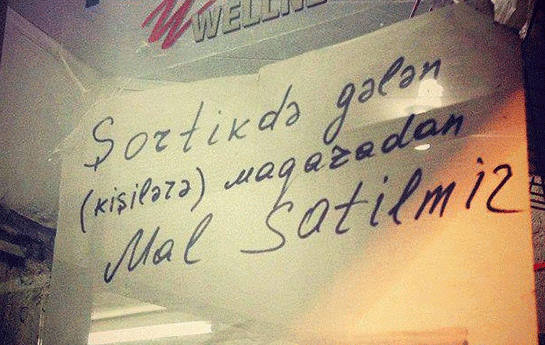 WELLNE
Şortikdə gələn
(kişilərə) mağazadan
Mal Satilmiz